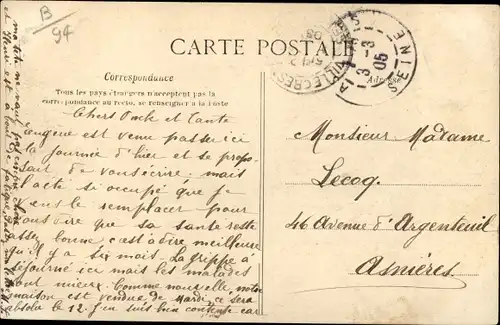 B
94
CARTE POSTALE
Correspondance
Tous les pays étrangers n'acceptent pas la
correspondance au recto, se renseigner à la Poste
Adresse
3-3
05
SEINE
Chers Oncle et Tante
Eugène est venu passer ici
la journée d'hier et se propo-
sait de vous écrire. mais
l'a été si occupé que je
viens le remplacer pour
vous dire que sa santé reste
assez bonne c'est à dire meilleure
qu'il y a six mois. La grippe a
séjourné ici mais les malades
vont mieux. Comme nouvelle notre
maison est vendue de Mardi, ce sera
absolu le 12. J'en suis bien contente car
Monsieur Madame
Lecoq
46 Avenue d'Argenteuil
Asnières